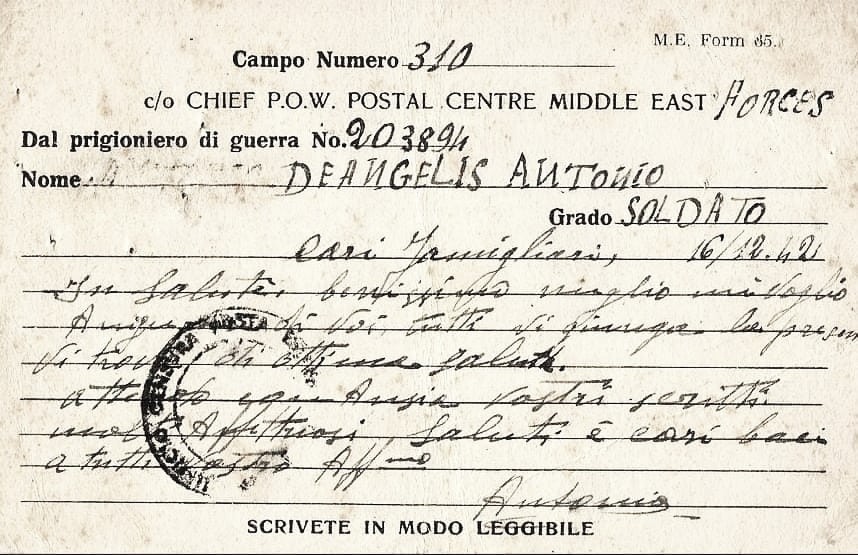 M.E. Form 65.
Campo Numero 310
c/o CHIEF P.O.W. POSTAL CENTRE MIDDLE EAST FORCES
Dal prigioniero di guerra No. 203894
Nome DEANGELIS ANTONIO
Grado SOLDATO
Cari Famigliari, 16/12.42
In Salute, benissimo meglio mi voglio
di voi tutti vi giunga la presen
vi di ottima salute.
con Ansia vostri scritti.
Affettuosi Saluti e cari baci
a tutti vostro Aff.mo
Antonio
UFFICIO CENSURA POSTA
SCRIVETE IN MODO LEGGIBILE